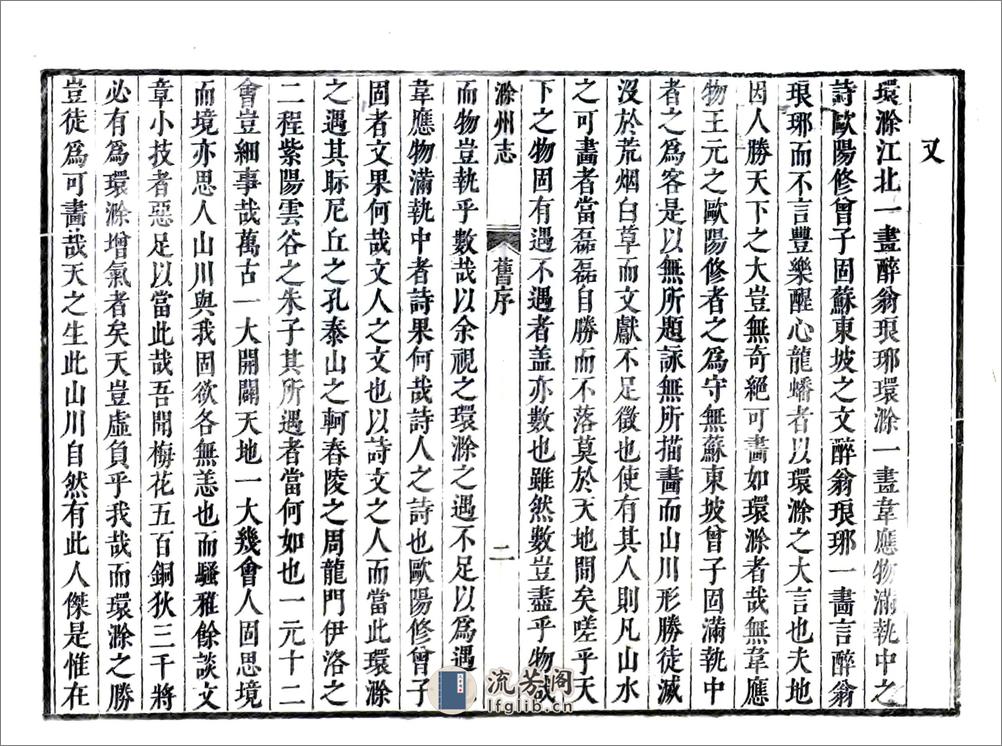 又
環滁江北一畫醉翁琅琊環滁一畫韋應物滿執中之
詩歐陽修曾子固蘇東坡之文醉翁琅琊一畫言醉翁
琅琊而不言豐樂醒心龍蟠者以環滁之大言也夫地
因人勝天下之大豈無奇絕可畫如環滁者哉無韋應
物王元之歐陽修者之為守無蘇東坡曾子固滿執中
者之為客是以無所題詠無所描畫而山川形勝徒滅
沒於荒烟白草而文獻不足徵也使有其人則凡山水
之可畫者當磊磊自勝而不落莫於天地間矣嗟乎天
下之物固有遇不遇者盖亦數也雖然數豈盡乎物哉
滁州志
舊序
二
而物豈執乎數哉以余視之環滁之遇不足以為遇
韋應物滿執中者詩果何哉詩人之詩也歐陽修曾子
固者文果何哉文人之文也以詩文之人而當此環滁
之遇其眎尼丘之孔泰山之軻舂陵之周龍門伊洛之
二程紫陽雲谷之朱子其所遇者當何如也一元十二
會豈細事哉萬古一大開闢天地一大幾會人固思境
而境亦思人山川與我固欲各無恙也而騷雅餘談文
章小技者惡足以當此哉吾聞梅花五百銅狄三千將
必有為環滁增氣者矣天豈虛負乎我哉而環滁之勝
豈徒為可畫哉天之生此山川自然有此人傑是惟在
流芳阁
lfglib.cn